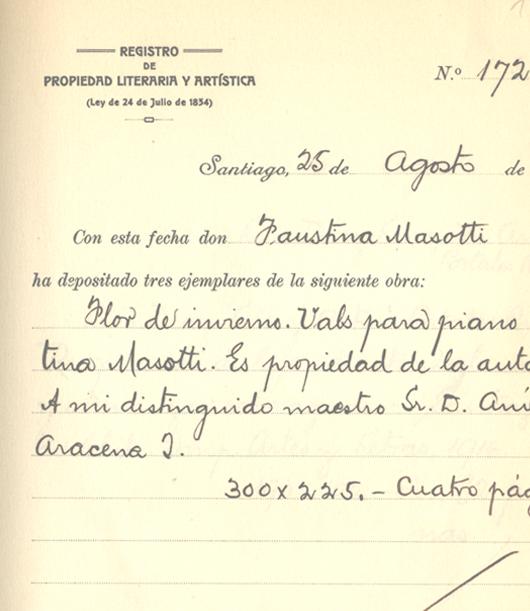 REGISTRO
DE
PROPIEDAD LITERARIA Y ARTÍSTICA
(Ley de 24 de Julio de 1834)
N.º 172
Santiago, 25 de Agosto de
Con esta fecha don Faustina Masotti
ha depositado tres ejemplares de la siguiente obra:
Flor de invierno. Vals para piano
tina Masotti. Es propiedad de la auto
A mi distinguido maestro Sr. D. Aní
Aracena I.
300 x 225. - Cuatro pág